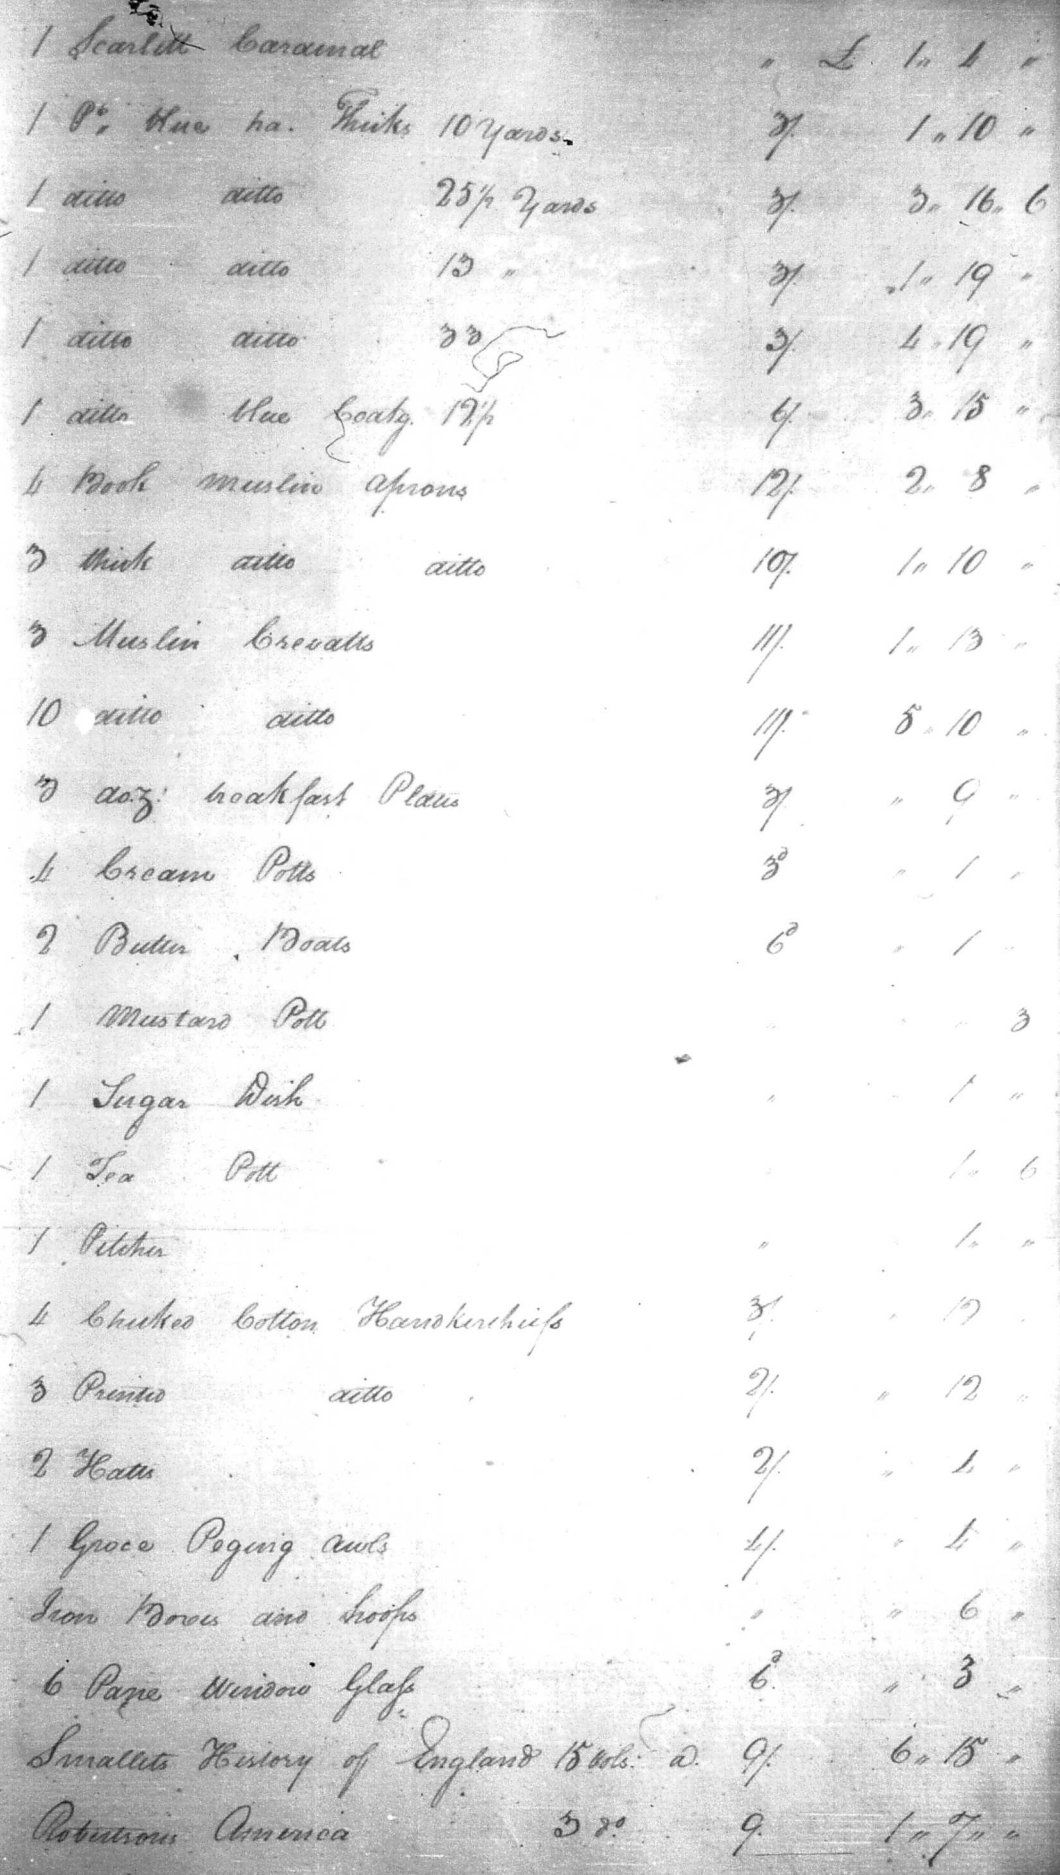 1 Scarlitt Cardinal " £ 1 " 4 "
1 Ps. blue ha. Thicks 10 Yards 3/. 1 " 10 "
1 ditto ditto 25 1/2 Yards 3/. 3 " 16 " 6
1 ditto ditto 13 " 3/. 1 " 19 "
1 ditto ditto 33 3/. 4 " 19 "
1 ditto blue Coatg. 12 1/2 6/. 3 " 15 "
4 Book Muslin Aprons 12/. 2 " 8 "
3 thick ditto ditto 10/. 1 " 10 "
3 Muslin Crevatts 11/. 1 " 13 "
10 ditto ditto 11/. 5 " 10 "
3 doz: breakfast Plates 3/. " 9 "
4 Cream Potts 3d " 1 "
2 Butter Boats 6d " 1 "
1 Mustard Pott " " 3
1 Sugar Dish " 1 "
1 Tea Pott 1 " 6
1 Pitcher " 1 " "
4 Checked Cotton Handkerchiefs 3/. " 12 "
3 Printed ditto 2/. " 12 "
2 Hatts 2/. " 4 "
1 Groce Peging awls 4/. " 4 "
Iron Boxes and hoops " " 6 "
6 Pane Window Glass 6d. " 3 "
Smalletts History of England 15 Vols. a. 9/. 6 " 15 "
Robertsons America 3 do. 9. 1 " 7 " "